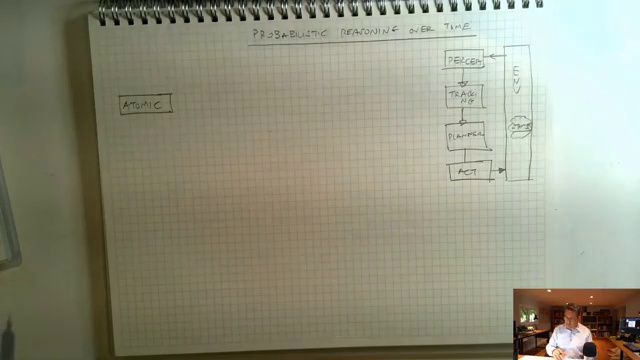 PROBABILISTIC REASONING OVER TIME
ATOMIC
TRACKI
NG
PLANNER
ACT
ENV